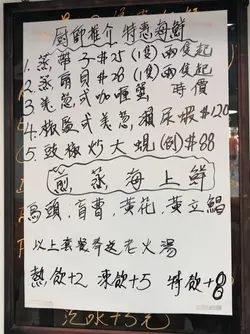 廚師推介 特惠海鮮
1. 蒸蟶子 #25 (1隻) 兩隻起
2. 蒸扇貝 #28 (1隻) 兩隻起
3. 美急式咖喱蟹 時價
4. 椒鹽式美急瀨尿蝦 #120
5. 豉椒炒大蜆 (例) #88
煎, 蒸海上鮮
馬頭, 盲曹, 黃花, 黃立鯧
以上套餐奉送老火湯
熱飲+2 凍飲+5 特飲+8
汽水+5元